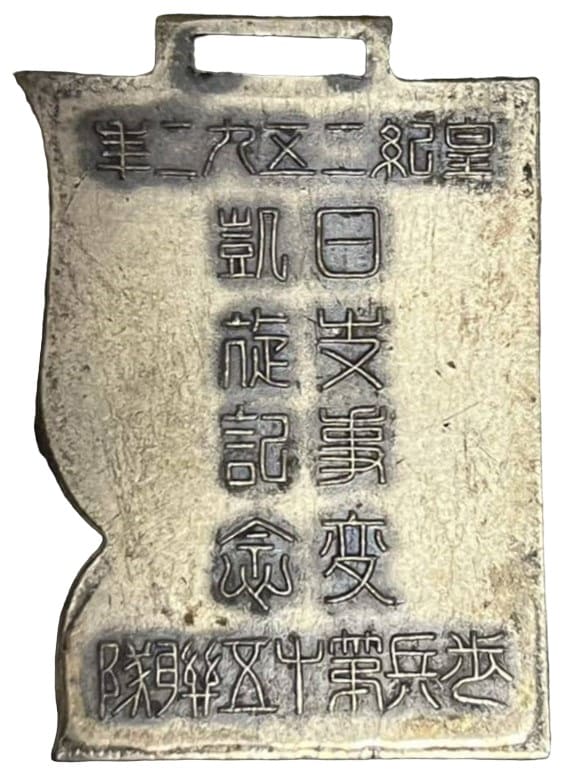 皇紀二五九二年
日支事変
凱旋記念
歩兵第十五聯隊